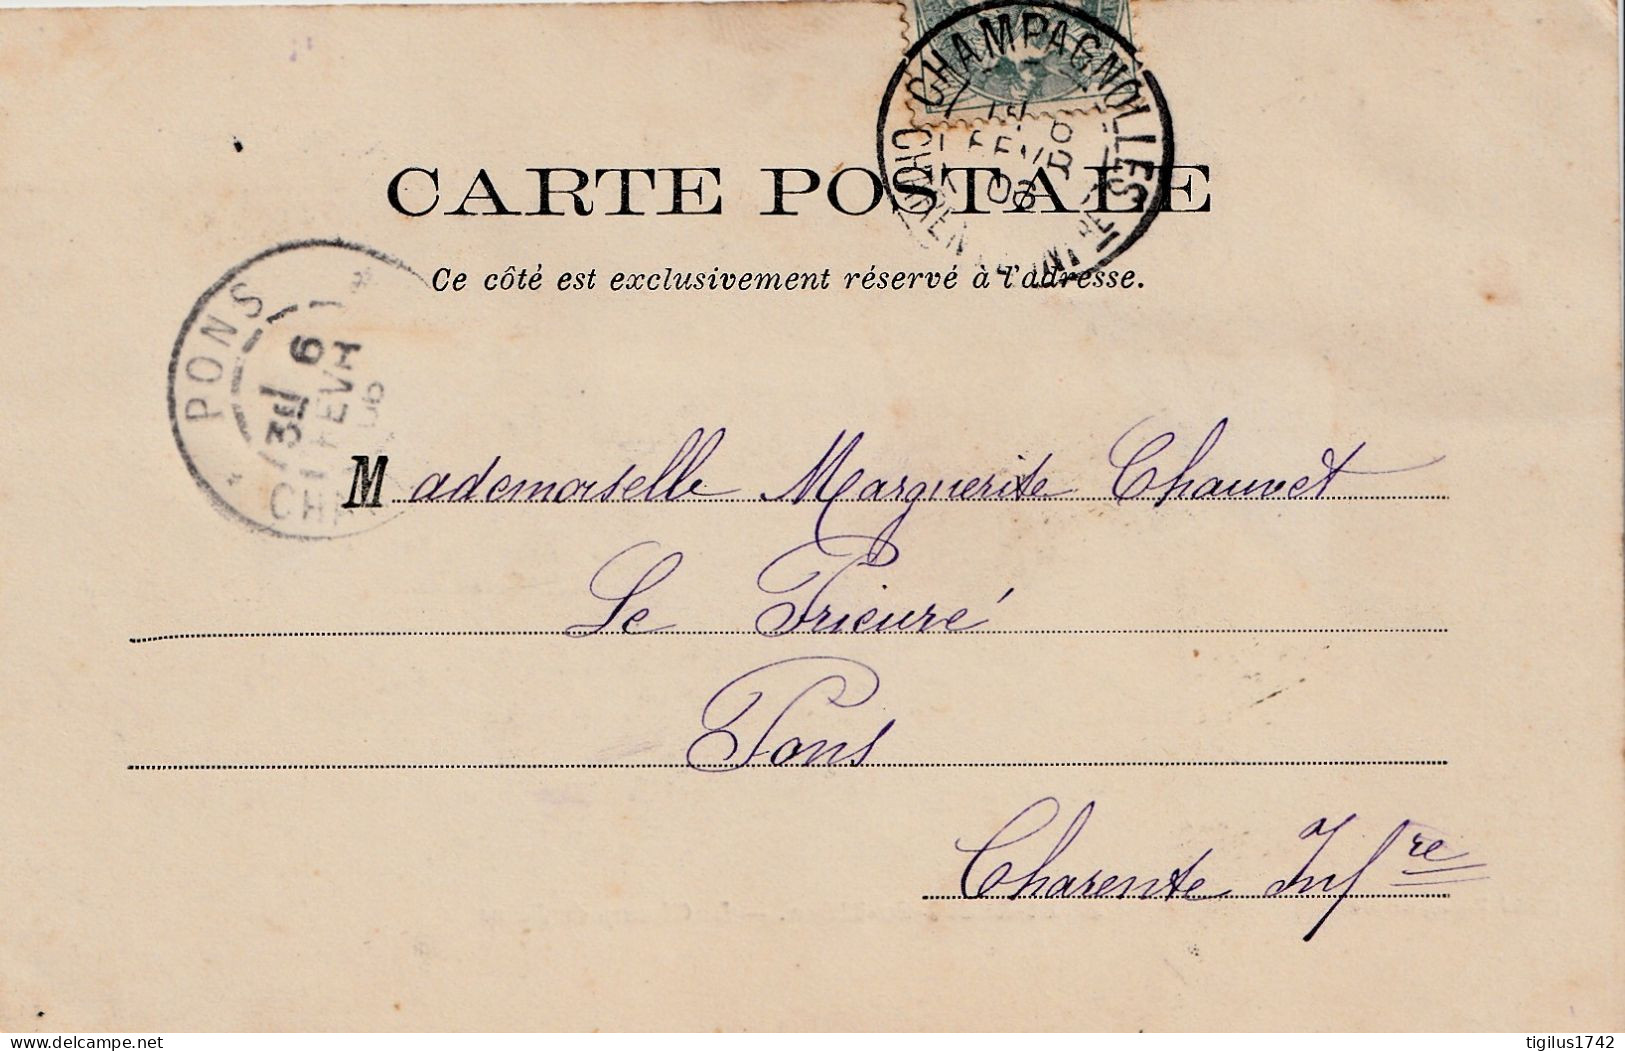 CHAMPAGNOLLES
FEVR
06
CARTE POSTALE
Ce côté est exclusivement réservé à l'adresse.
PONS
6
FEVR
06
Mademoiselle Marguerite Chauvet
Le Prieuré
Pons
Charente Infre
delcampe.net
tigilus1742